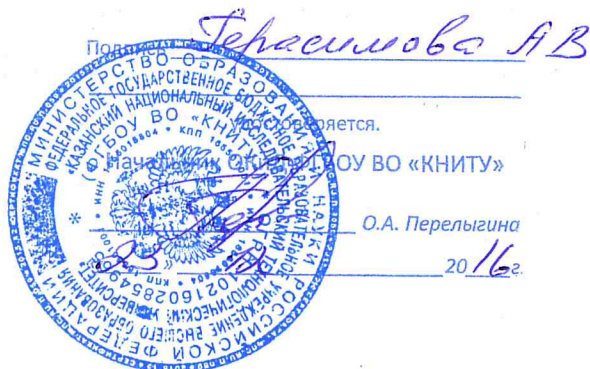 Подпись Герасимова АВ
удостоверяется.
Начальник ОКиД ФГБОУ ВО «КНИТУ»
О.А. Перелыгина
23 2016 г.
МИНИСТЕРСТВО ОБРАЗОВАНИЯ И НАУКИ РОССИЙСКОЙ ФЕДЕРАЦИИ
ФЕДЕРАЛЬНОЕ ГОСУДАРСТВЕННОЕ БЮДЖЕТНОЕ ОБРАЗОВАТЕЛЬНОЕ УЧРЕЖДЕНИЕ ВЫСШЕГО ОБРАЗОВАНИЯ
«КАЗАНСКИЙ НАЦИОНАЛЬНЫЙ ИССЛЕДОВАТЕЛЬСКИЙ ТЕХНОЛОГИЧЕСКИЙ УНИВЕРСИТЕТ»
(ФГБОУ ВО «КНИТУ»)